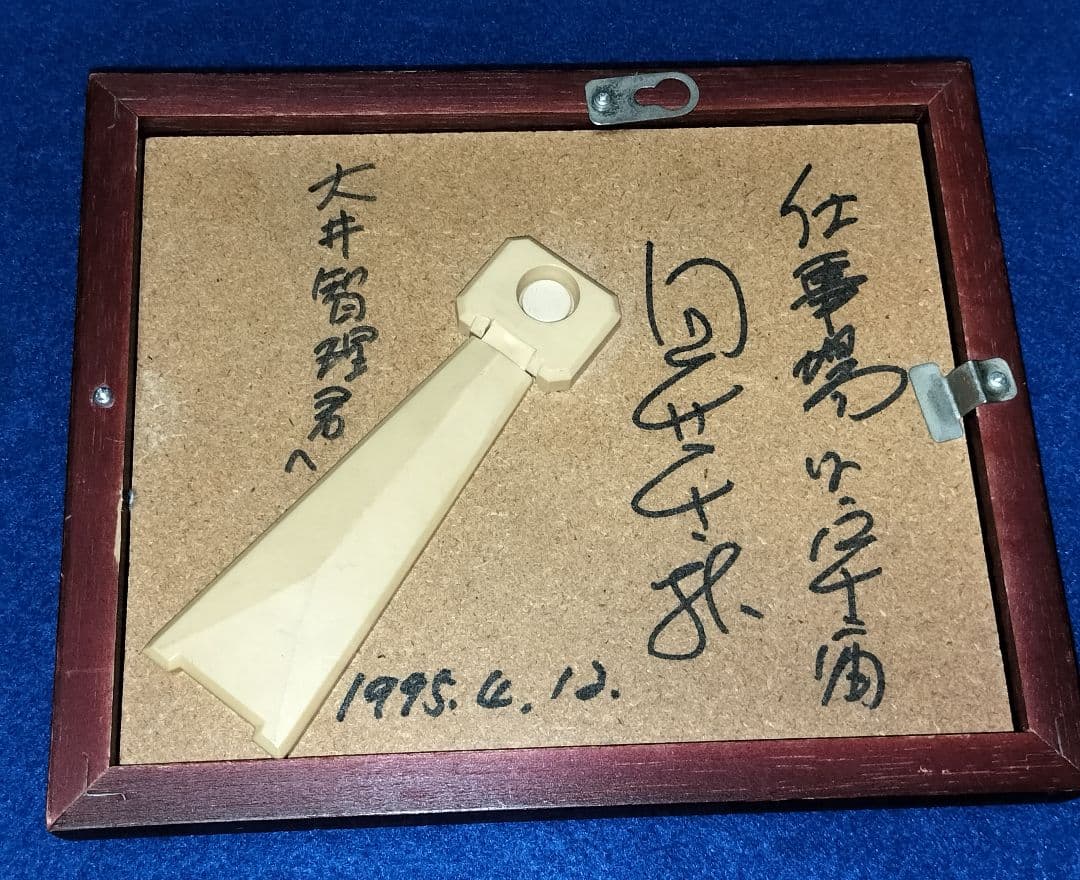 仕事場は宇宙
大井智理君へ
1995.4.12.